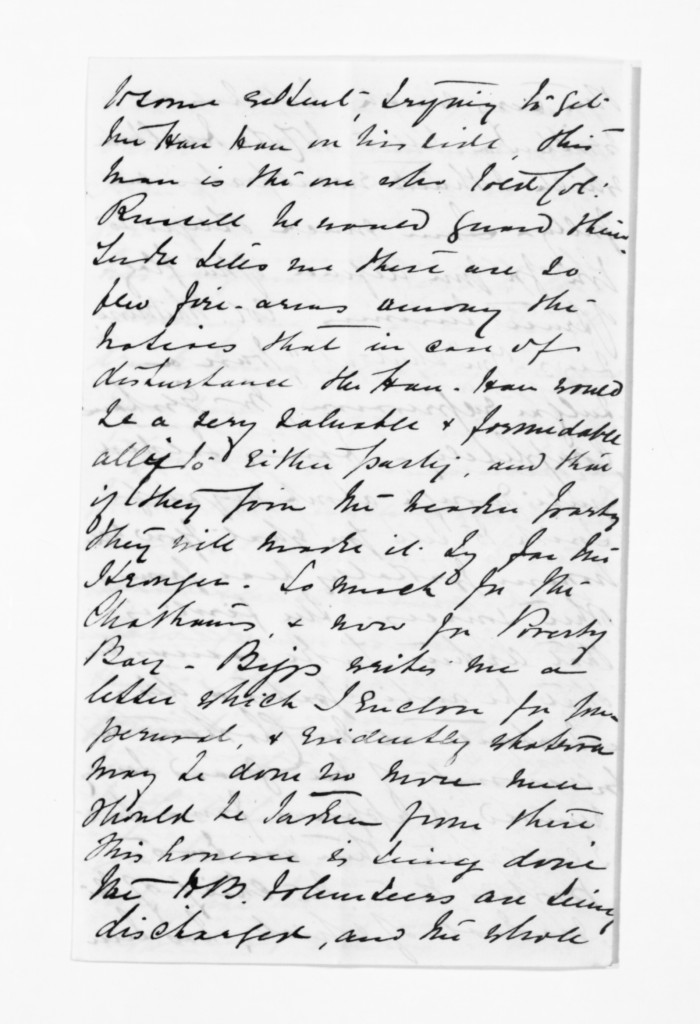 to some extent, trying to get
the Hau Hau on his side, this
man is the one who told Col:
Russell he would guard them.
Tells me there are so
few fire-arms among the
natives that in case of
disturbance the Hau-Hau would
be a very valuable & formidable
ally to either party, and that
if they join the weaker party
they will make it by far the
stronger. So much for the
Chathams, & now for Poverty
Bay - Biggs writes me a
letter which I enclose for your
perusal, & evidently whatever
may be done no more men
should be taken from there
this however is being done
the H.B. Volunteers are being
discharged, and the whole